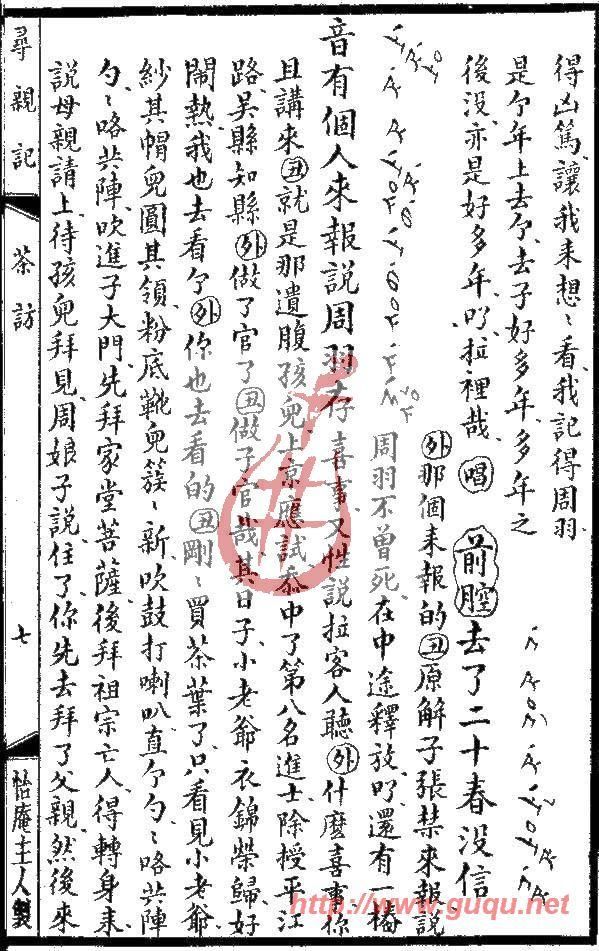 得凶篤、讓我来想〻看、我記得周羽
是个年上去个、去子好多年、多年之
後没、亦是好多年、叮拉裡哉、唱 前腔 去了二十春没信
外那個来報的丑原解子張禁來報說
周羽不曾死、在中途釋放叮、還有一樁
音有個人來報説周羽存 喜事、又性説拉客人聽、外什麽喜事、你
且講来、丑就是那遺腹孩兒上京應試、忝中了第八名進士、除授平江
路、吴縣知縣、外做了官了、丑做子官哉、其日子、小老爺衣錦榮歸、好
鬧熱、我也去看个、外你也去看的、丑剛〻買茶葉了、只看見小老爺、
紗其帽兒、圓其領、粉底靴兒簇〻新、吹鼓打喇叭、直个勺〻咯共陣、
勺〻咯共陣、吹進子大門、先拜家堂菩薩、後拜祖宗亡人、得轉身来、
説母親請上、待孩兒拜見、周娘子説、住了、你先去拜了父親、然後来
尋親記
茶訪
七
怡庵主人製
http://www.guqu.net